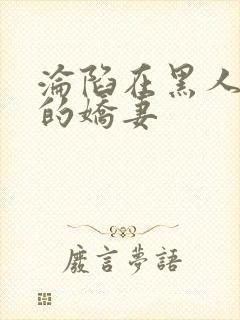 淪陷在黑人
的嬌妻
廢言夢語